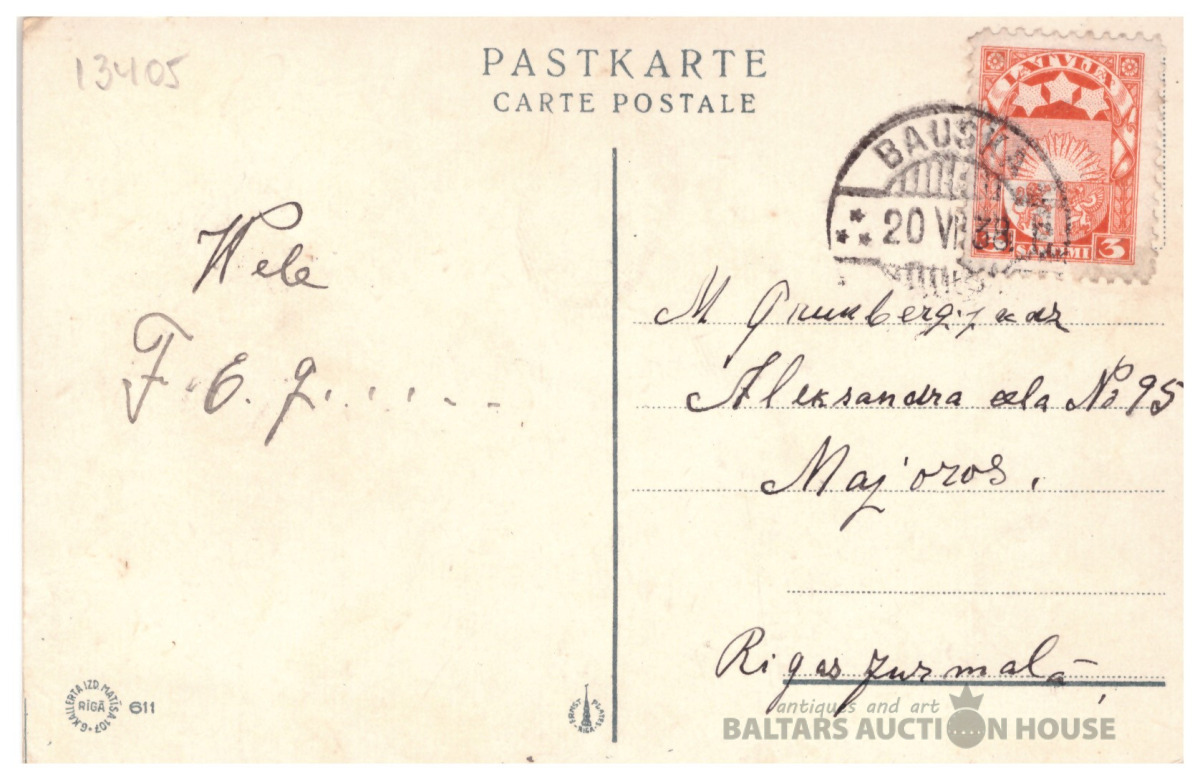 13405
PASTKARTE
CARTE POSTALE
LATVIJA
BAUSKA
20 VII 33
3 SANTIMI 3
Wele
F. E. J. . . . . - -
M Grunberg
Aleksandra cela No 95
Majoros.
Rigas jurmalā
G. KALLERTA IZD. MATĪSA 107
RĪGĀ
611
antiques and art
BALTARS AUCTION HOUSE